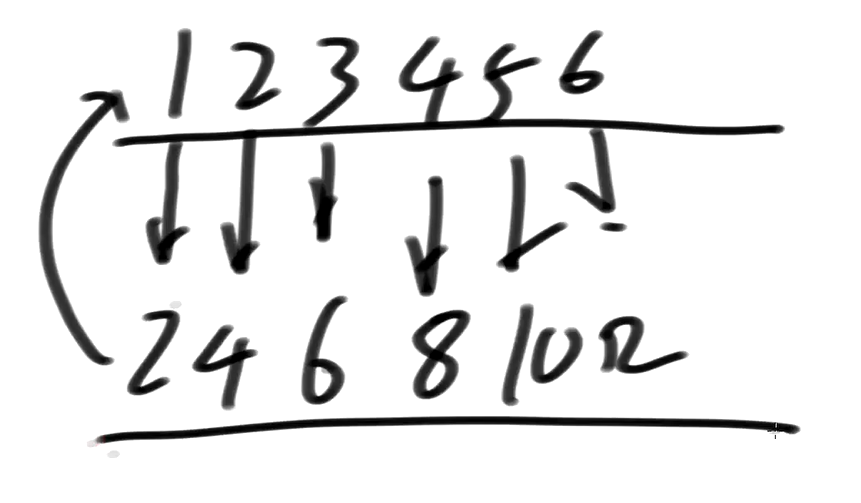 1 2 3 4 5 6
2 4 6 8 10 12